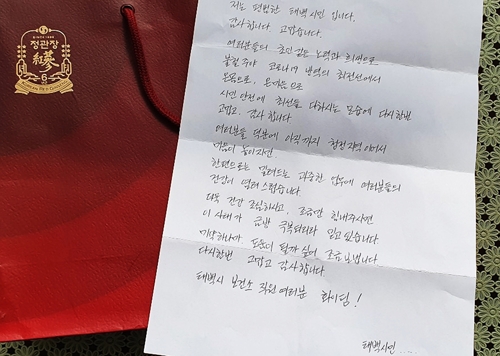 SINCE 1899
정관장
紅蔘
6
저는 평범한 태백시민 입니다.
감사합니다. 고맙습니다.
여러분들의 피나는 노력과 희생으로
불철주야 코로나19 방역의 최전선에서
몸으로, 온마음으로
시민 안전에 최선을 다하시는 모습에 다시한번
고맙고, 감사합니다.
여러분들 덕분에 아직까지 청정지역이어서
마음이 놓이지만,
한편으로는 밀려드는 과중한 업무에 여러분들의
건강이 염려스럽습니다
더욱 건강 조심하시고, 조금만 힘내주시면
이 사태가 금방 극복되리라 믿고 있습니다
미약하나마 도움이 될까 싶어 조금 보냅니다
다시한번 고맙고 감사합니다.
태백시 보건소 직원 여러분 화이팅!
태백시민